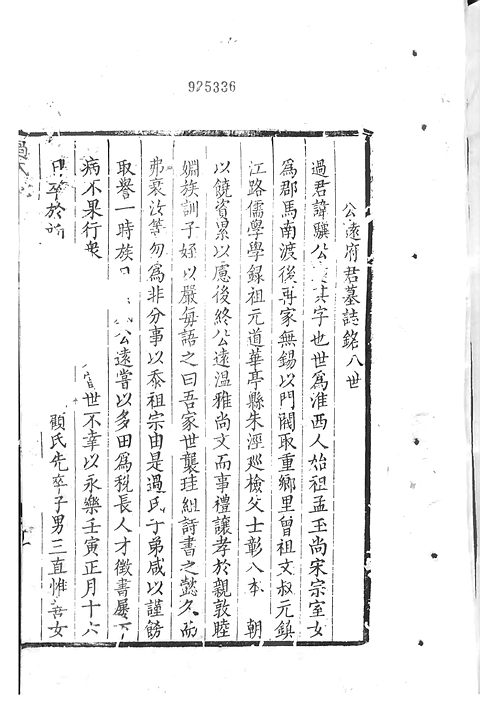 925336
公遠府君墓誌銘八世
過君諱驥公其字也世爲淮西人始祖孟玉尚宋宗室女
爲郡馬南渡後再家無錫以門閥取重鄉里曾祖文叔元鎮
江路儒學學録祖元道華亭縣朱涇廵檢父士彰入本 朝
以饒資累以慮後終公遠温雅尚文而事禮讓孝於親敦睦
婣族訓子姪以嚴每語之曰吾家世襲珪組詩書之懿久而
弗衰汝等勿爲非分事以忝祖宗由是過氏子弟咸以謹飭
取譽一時族 公遠嘗以多田爲税長人才徵書屢下
病不果行 世不幸以永樂壬寅正月十六
日卒於 顧氏先卒子男三直惟善女